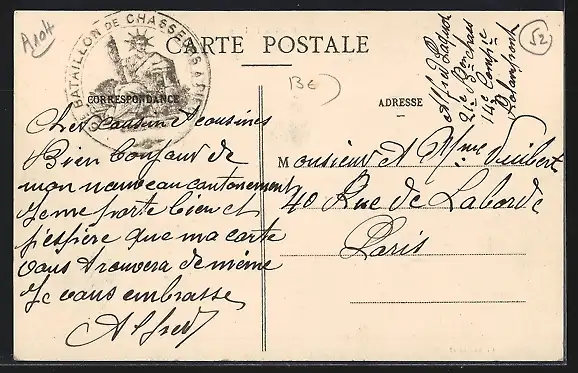 A101
BATAILLON DE CHASSEURS À
CARTE POSTALE
52
BE
CORRESPONDANCE
ADRESSE
Alfred
21e Bon chass
14e Compie
Rolampont
Chers cousin et cousines
Bien bonjour de
mon nouveau cantonement
Je me porte bien et
j'espère que ma carte
vous trouvera de même
Je vous embrasse
Alfred
Monsieur et Mme Vuibert
40 Rue de Laborde
Paris